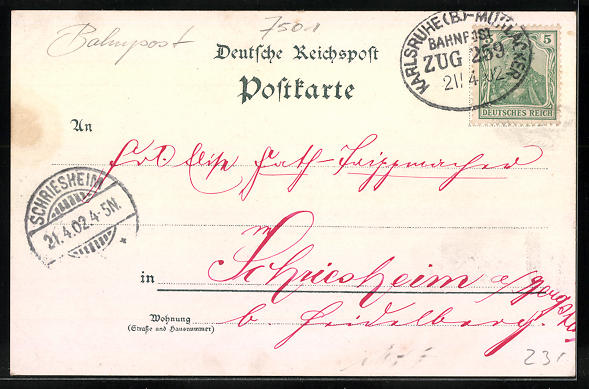 Bahnpost
7501
Deutsche Reichspost
Postkarte
KARLSRUHE (B.)-MÜHLACKER
BAHNPOST
ZUG 259
21 4 02
5
DEUTSCHES REICH
An
Frl. Elise
SCHRIESHEIM
21.4.02.4-5N.
in Schriesheim a/
b. Heidelberg.
Wohnung
(Straße und Hausnummer)
231